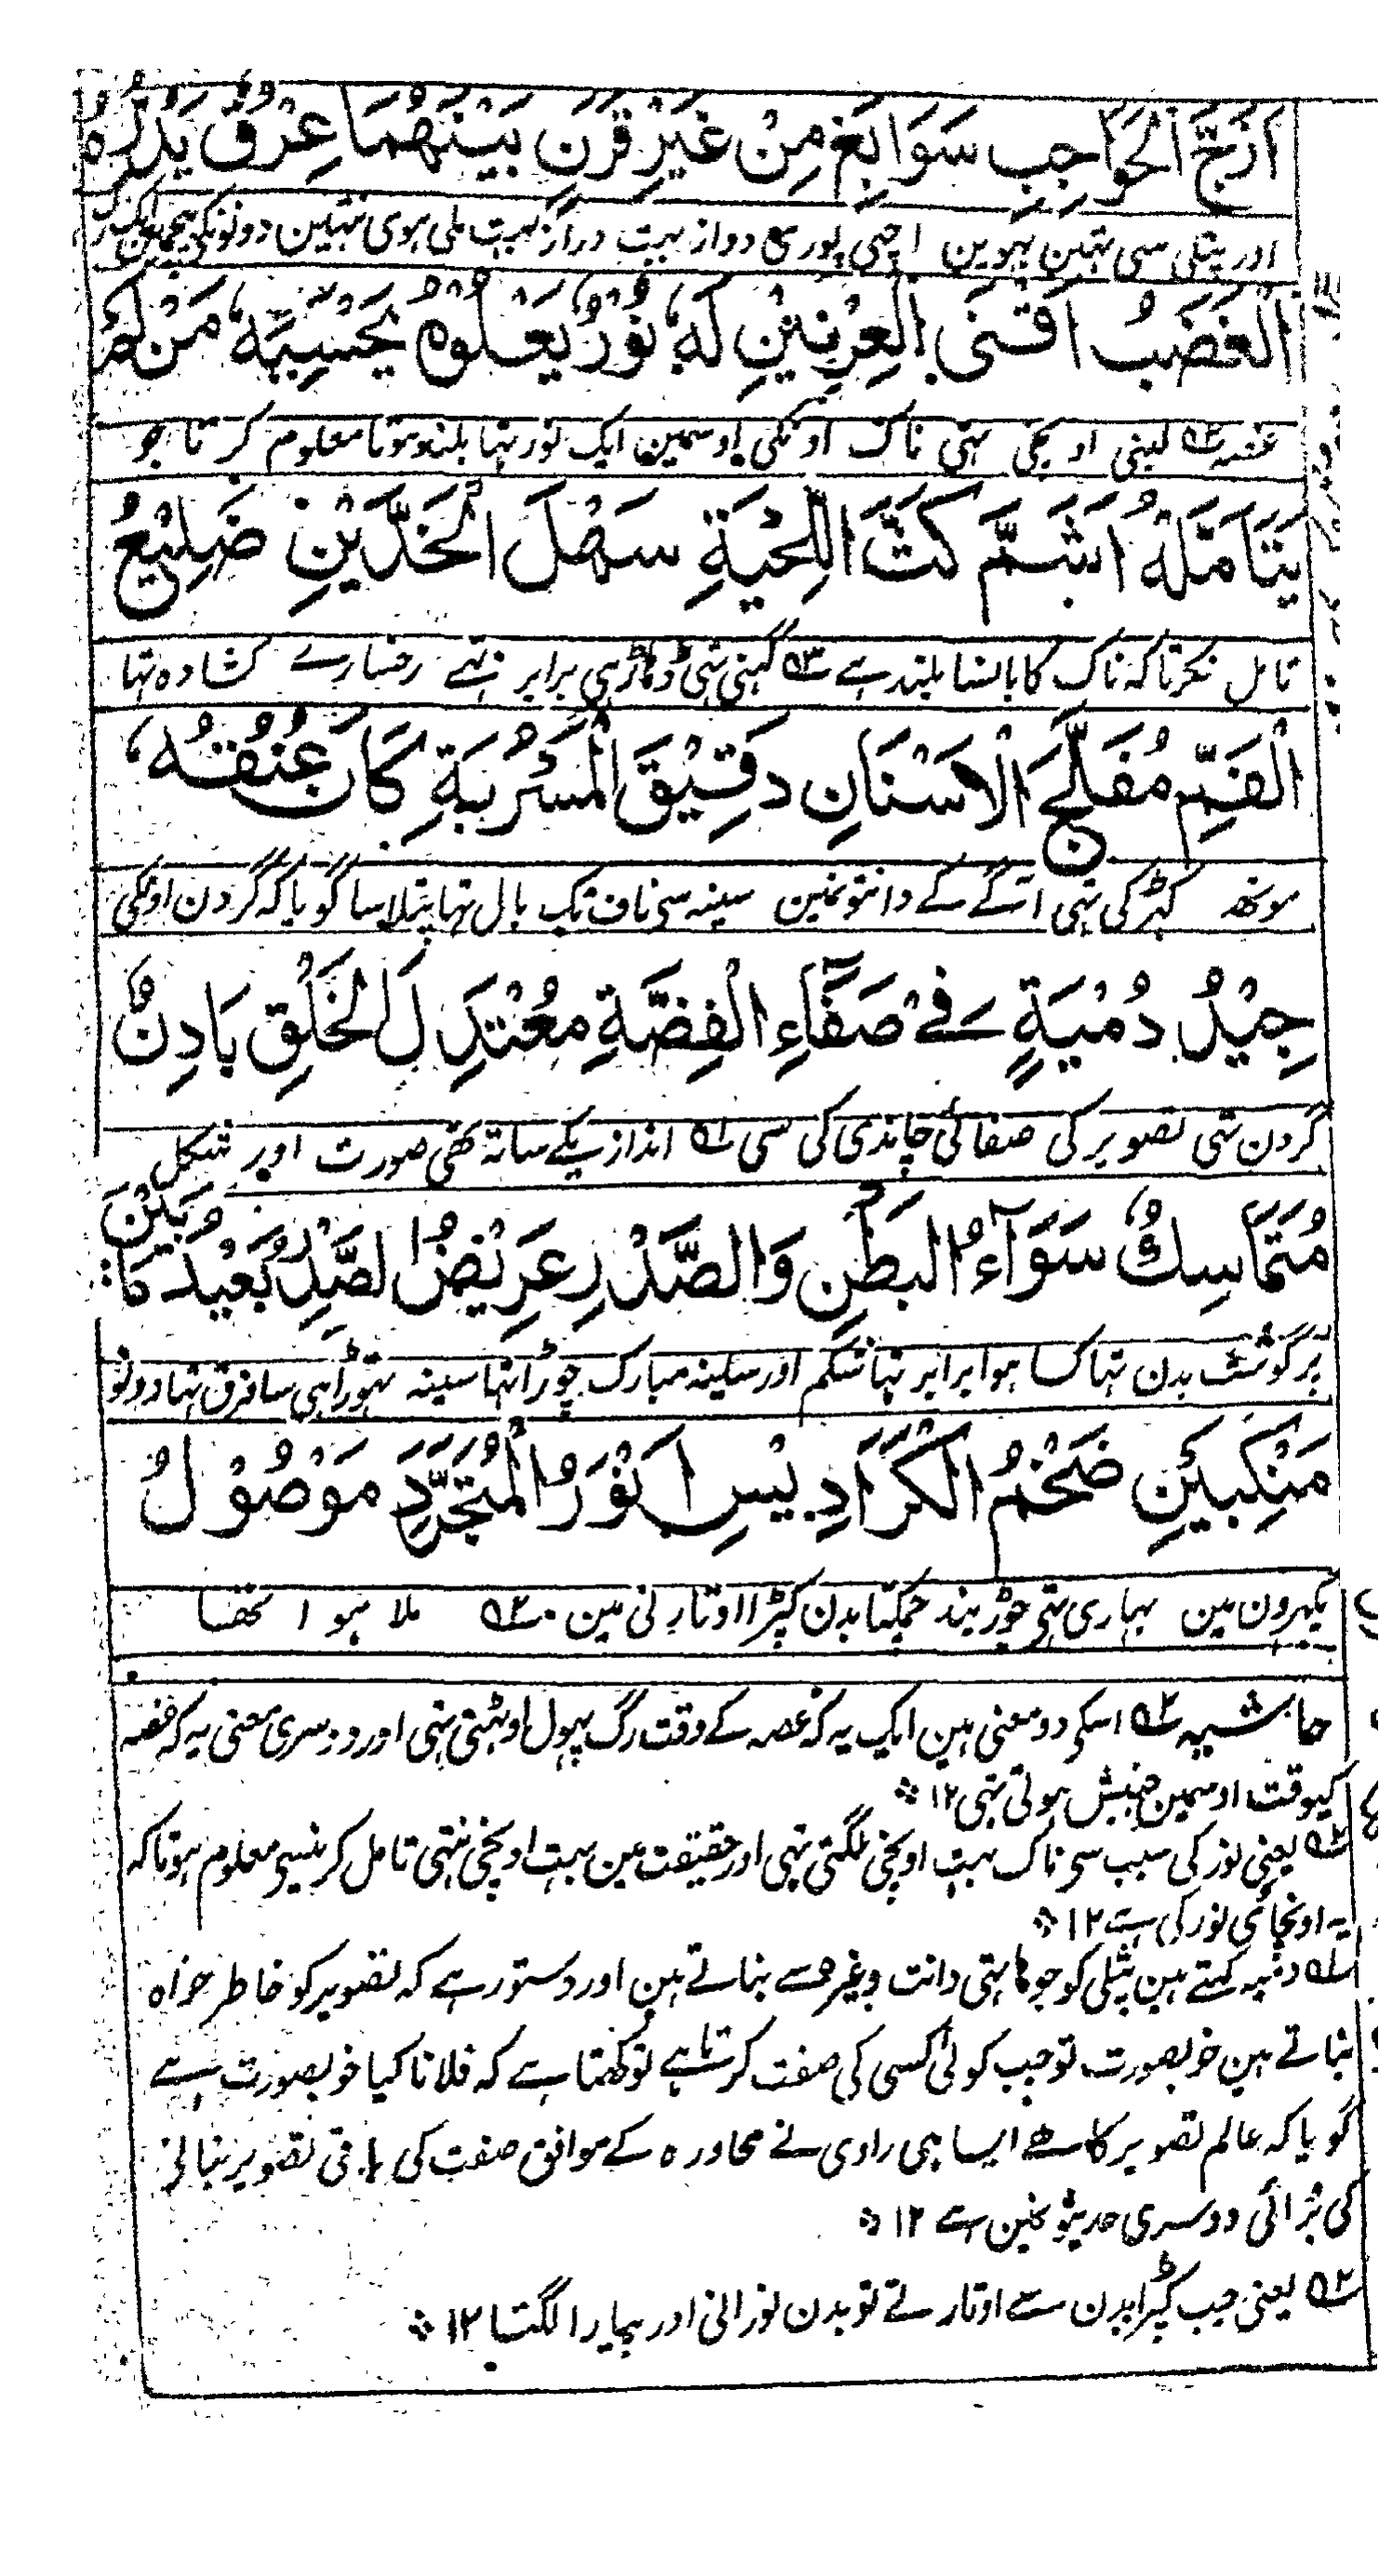 اَزَجَّ الْحَوَاجِبِ سَوَابِغَ مِنْ غَيْرِ قَرَنٍ بَيْنَهُمَا عِرْقٌ يُدِرُّهُ
اور پتلی سی تہین بہوین اچھی پوری دراز بہت دراز نہیت ملی ہوی نتہین دونونکی بیچمین ایک رگ
الْغَضَبُ اَقْنَى الْعِرْنِيْنِ لَهٗ نُوْرٌ يَعْلُوْهُ يَحْسِبُهٗ مَنْ لَمْ
غصہ ۲ لنبی اونچی تہی ناک اونکی اوسمین ایک نور تہا بلند ہوتا معلوم کرتا جو
يَتَاَمَّلْهُ اَشَمَّ كَثَّ اللِّحْيَةِ سَهْلَ الْخَدَّيْنِ ضَلِيْعُ
تامل نکرتا کہ ناک کا بانسا بلند ہے ۳ گہنی تہی ڈاڑہی برابر تہے رخسارے کشادہ تہا
الْفَمِّ مُفَلَّجَ الْاَسْنَانِ دَقِيْقَ الْمَسْرُبَةِ كَاَنَّ عُنُقَهٗ
مونھ کہڑکی تہی آگے کے دانتونمین سینہ سی ناف تک بال تہا پتلا سا گویا کہ گردن اونکی
جِيْدُ دُمْيَةٍ فِے صَفَاءِ الْفِضَّةِ مُعْتَدِلَ الْخَلْقِ بَادِنٌ
گردن تہی تصویر کی صفائی چاندی کی سی ۱ اندازیکے ساتہ تہی صورت اور شکل
مُتَمَاسِكٌ سَوَآءُ الْبَطْنِ وَالصَّدْرِ عَرِيْضُ الصَّدْرِ بُعَيْدُ مَا بَيْنَ
پرگوشت بدن تہا کسا ہوا برابر تہا شکم اور سینہ مبارک چوڑا تہا سینہ تہوڑا ہی سا فرق تہا دونو
مَنْكِبَيْنِ ضَخْمُ الْكَرَادِيْسِ اَنْوَرُ الْمُتَجَرَّدِ مَوْصُوْلُ
پکہرون مین بہاری تہی جوڑ بند چمکتا بدن کپڑا اوتارنی مین ۲ ملا ہوا تھا
حاشیہ ۲ اسکی دو معنی ہین ایک یہ کہ غصہ کے وقت رگ پہول اوٹہتی تہی اور دوسری معنی یہ کہ غصہ
کیوقت اوسمین جنبش ہوتی تہی ۱۲
۳ یعنی نور کی سبب سی ناک بہت اونچی لگتی تہی اور حقیقت مین بہت اونچی نتہی تامل کرنیسی معلوم ہوتا کہ
یہ اونچائی نور کی ہے ۱۲
۱ دمیہ کہتے ہین پتلی کو جو ہاتہی دانت وغیرہ سے بناتے ہین اور دستور ہے کہ تصویر کو خاطر خواہ
بناتے ہین خوبصورت تو جب کوئی کسی کی صفت کرتا ہے تو کہتا ہے کہ فلانا کیا خوبصورت ہے
گویا کہ عالم تصویر کا ہے ایسا ہی راوی نے محاورہ کے موافق صفت کی باقی تصویر بنانی
کی بُرائی دوسری حدیثونمین ہے ۱۲
۲ یعنی جب کپڑا بدن سے اوتارتے تو بدن نورانی اور پیارا لگتا ۱۲